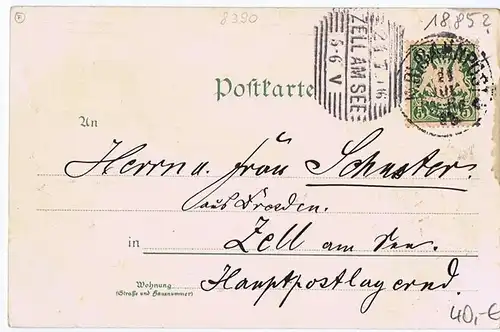 8390
1885?
ZELL AM SEE
5-6 V
Postkarte
An
Herrn u. Frau Schuster.
aus Dresden.
in Zell am See.
Wohnung
(Straße und Hausnummer)
Hauptpostlagernd.
40,-€